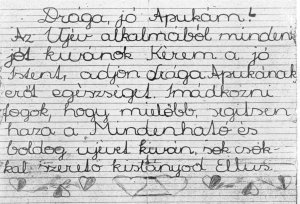 Drága, jó Apukám!
Az Újév alkalmából minden
jót kivánok Kérem a jó
Istent, adjon drága Apukának
erőt egészséget. Imádkozni
fogok, hogy mielőbb, segitsen
haza a Mindenható és
boldog újévet kiván, sok csók-
kal szerető kislányod Ellus